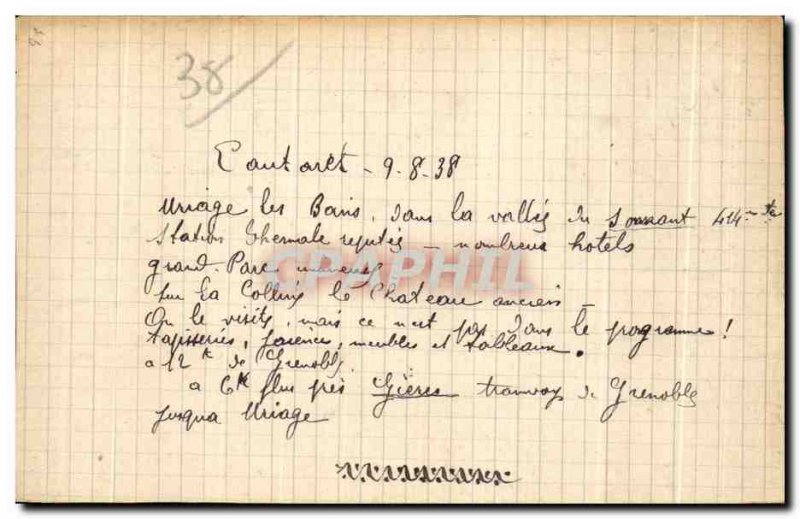 38
Cautarêt - 9-8-38
Uriage les Bains, dans la vallée du Sonnant 414 m
Station thermale reputée - nombreux hotels
grand Parc
sur la Colline le Chateau ancien -
On le visite, mais ce n'est pas dans le programme !
tapisseries, faiences, meubles et tableaux.
a 12 k de Grenoble
a 6k plus près Gières tramway de Grenoble
jusqua Uriage
CPAPHIL